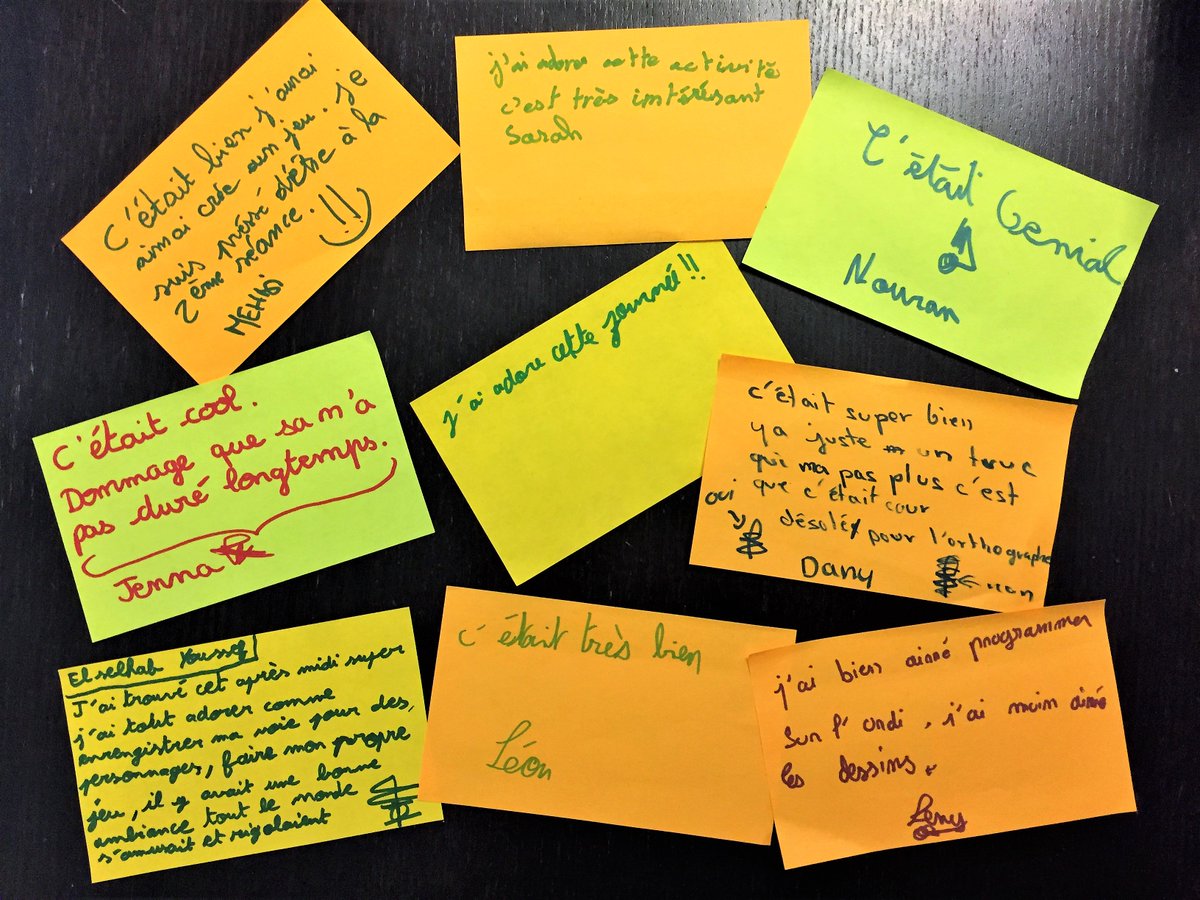 C'était bien j'aurai
aimai crée un jeu. je
suis préssé d'être à la
2ème séance. !!
MEHDI
j'ai adorer cette activité
c'est très intérésant
Sarah
C'étai Genial
Nouran
C'était cool.
Dommage que sa m'a
pas duré longtemps.
Jenna
j'ai adore cette journné!!
c'était super bien
ya juste un truc
qui ma pas plus c'est
que c'était cour
oui
désolé pour l'orthographe
Dany
← non
El selhab Youssef
J'ai trouvé cet après midi super
j'ai tout adorer comme
enregistrer ma voie pour des
personnages, faire mon propre
jeu, il y avait une bonne
ambiance tout le monde
s'amusait et rigolaient
c'était très bien
Léon
j'ai bien aimé programmer
sur l'ordi, j'ai moin aimé
les dessins.
Leny